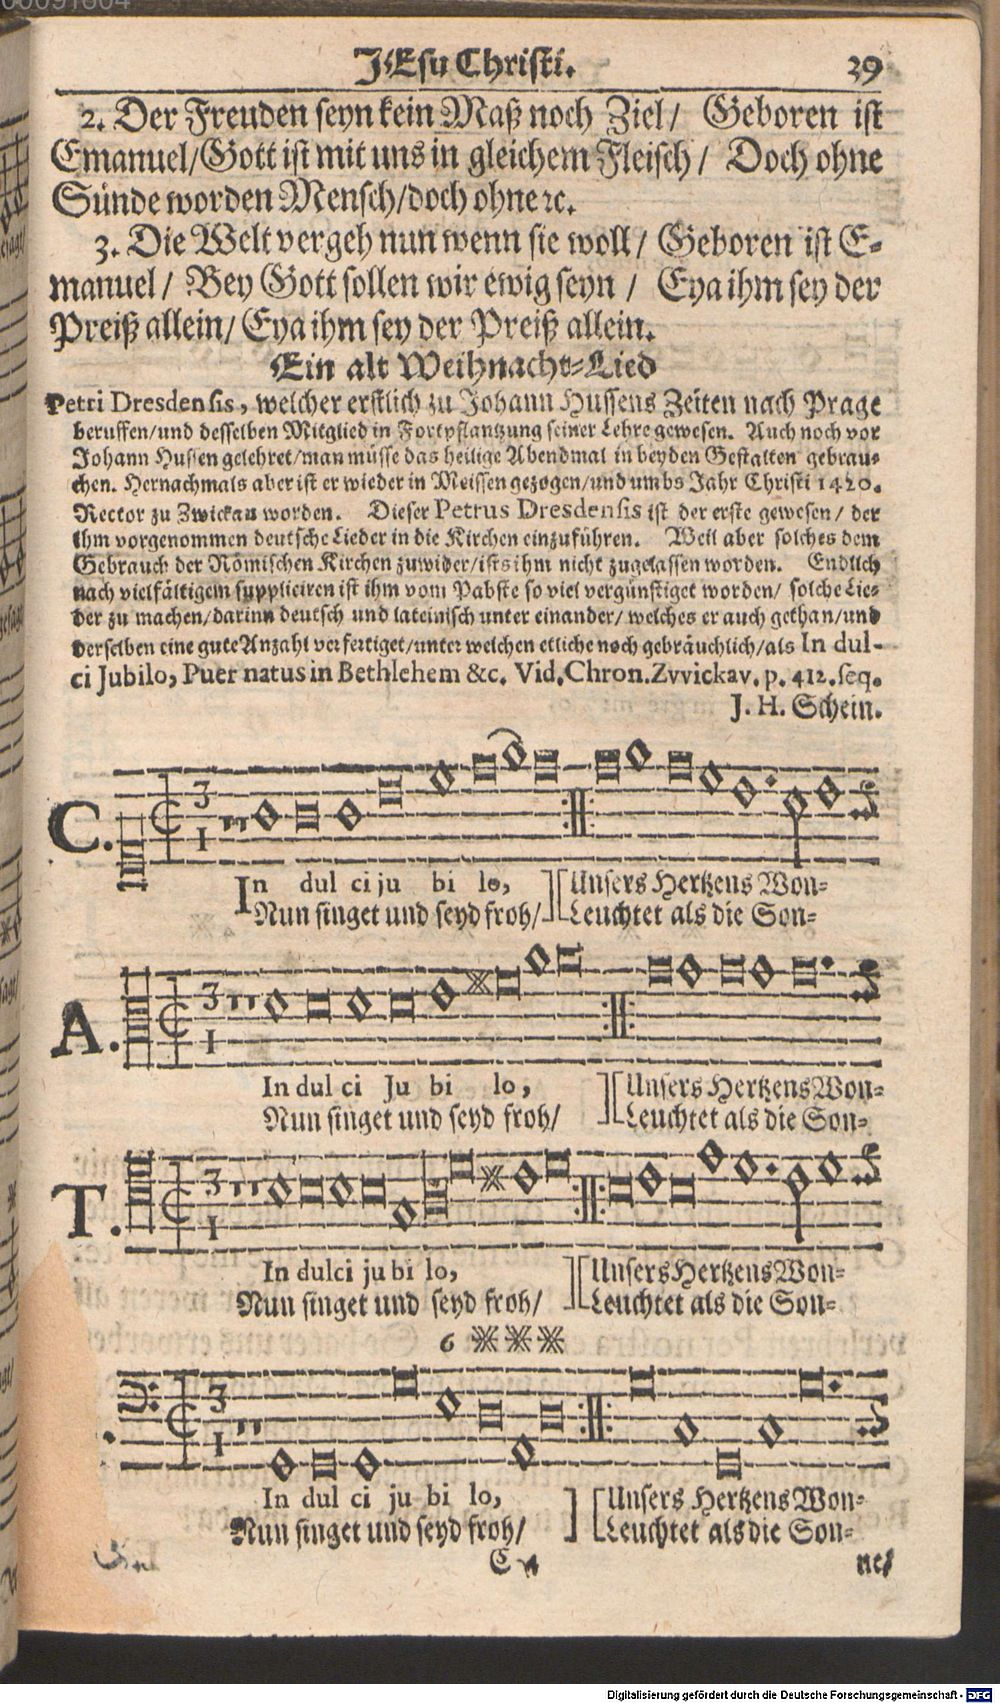 00091604
JEsu Christi. 39
2. Der Freuden seyn kein Maß noch Ziel/ Geboren ist
Emanuel/Gott ist mit uns in gleichem Fleisch/ Doch ohne
Sünde worden Mensch/doch ohne ꝛc.
3. Die Welt vergeh nun wenn sie woll/ Geboren ist E-
manuel/ Bey Gott sollen wir ewig seyn / Eya ihm sey der
Preiß allein/ Eya ihm sey der Preiß allein.
Ein alt Weihnacht-Lied
Petri Dresdensis, welcher erstlich zu Johann Hussens Zeiten nach Prage
beruffen/und desselben Mitglied in Fortpflantzung seiner Lehre gewesen. Auch noch vor
Johann Hussen gelehret/man müsse das heilige Abendmal in beyden Gestalten gebrau-
chen. Hernachmals aber ist er wieder in Meissen gezogen/und umbs Jahr Christi 1420.
Rector zu Zwickau worden. Dieser Petrus Dresdensis ist der erste gewesen/ der
ihm vorgenommen deutsche Lieder in die Kirchen einzuführen. Weil aber solches dem
Gebrauch der Römischen Kirchen zuwider/ists ihm nicht zugelassen worden. Endlich
nach vielfältigem suppliciren ist ihm vom Pabste so viel vergünstiget worden/ solche Lie-
der zu machen/darinn deutsch und lateinisch unter einander/ welches er auch gethan/und
derselben eine gute Anzahl verfertiget/unter welchen etliche noch gebräuchlich/als In dul-
ci Jubilo, Puer natus in Bethlehem &c. Vid. Chron. Zvvickav. p. 412. seq.
J. H. Schein.
C. 3 1
In dul ci ju bi lo, Unsers Hertzens Won-
Nun singet und seyd froh/ Leuchtet als die Son-
A. 3 1
In dul ci Ju bi lo, Unsers Hertzens Won-
Nun singet und seyd froh/ Leuchtet als die Son-
T. 3 1
In dulci ju bi lo, Unsers Hertzens Won-
Nun singet und seyd froh/ Leuchtet als die Son-
6
3 1
In dul ci ju bi lo, Unsers Hertzens Won-
Nun singet und seyd froh/ Leuchtet als die Son-
ne/
Digitalisierung gefördert durch die Deutsche Forschungsgemeinschaft - DFG